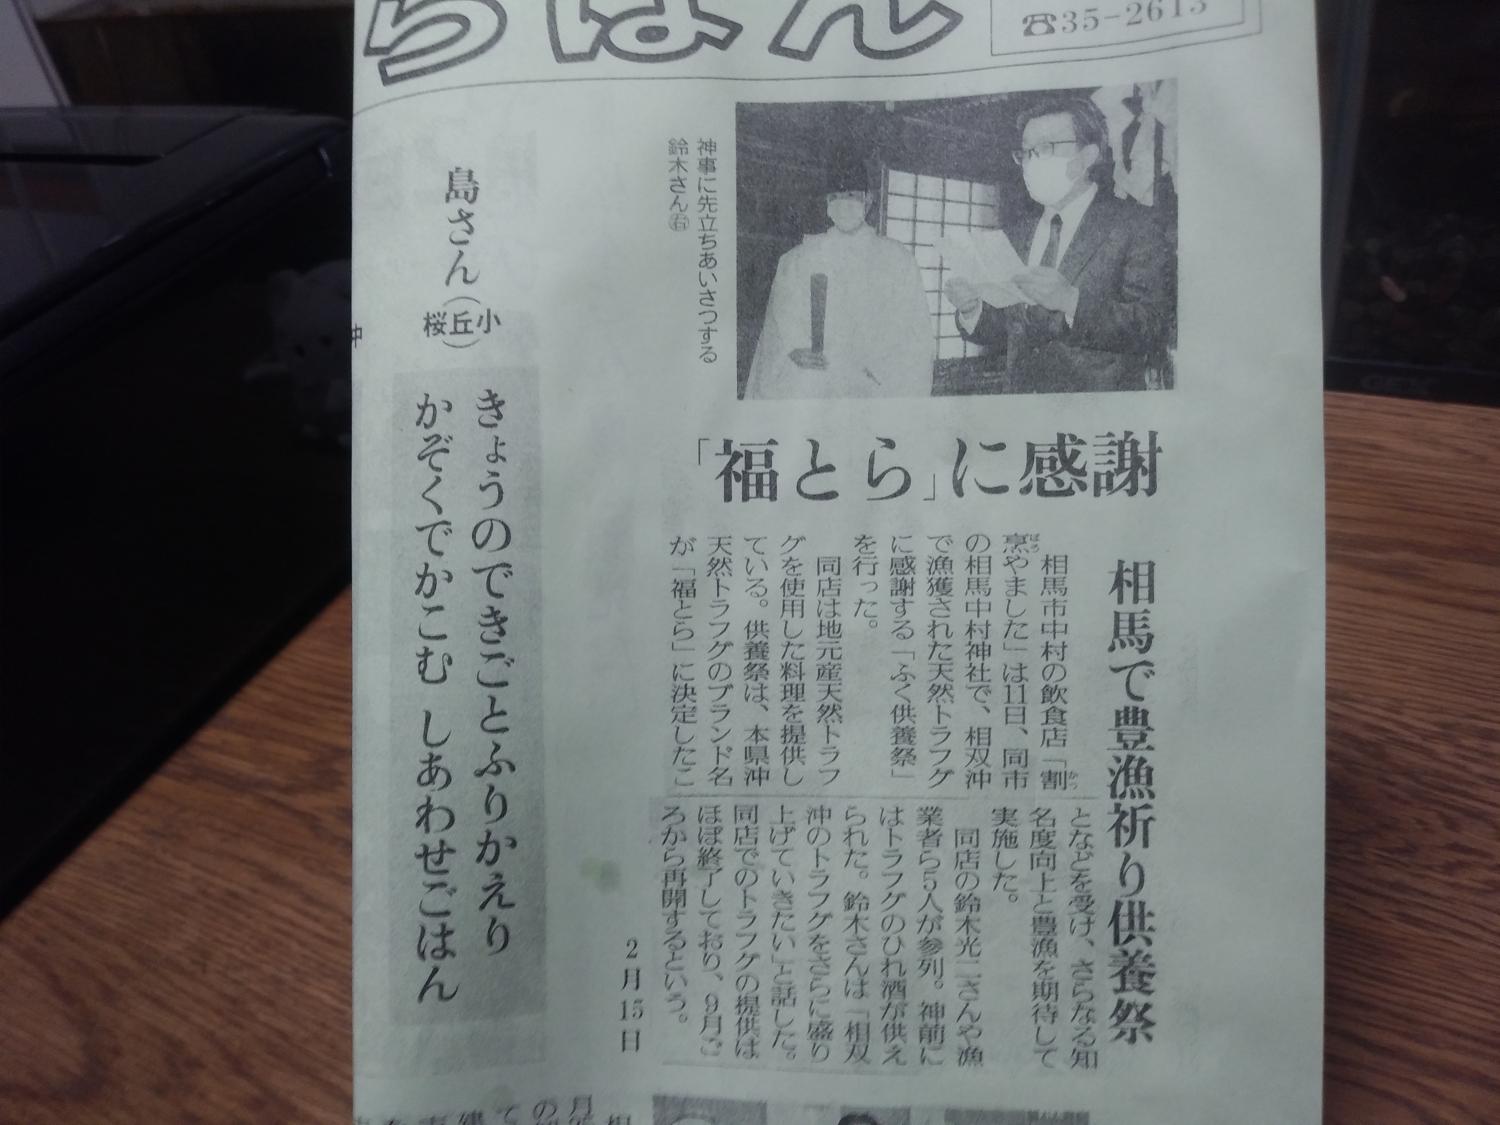 らはん
☎35-2613
神事に先立ちあいさつする
鈴木さん㊨
「福とら」に感謝
相馬で豊漁祈り供養祭
相馬市中村の飲食店「割
かっ
烹やました」は11日、同市
ぽう
の相馬中村神社で、相双沖
で漁獲された天然トラフグ
に感謝する「ふく供養祭」
を行った。
同店は地元産天然トラフ
グを使用した料理を提供し
ている。供養祭は、本県沖
天然トラフグのブランド名
が「福とら」に決定したこ
となどを受け、さらなる知
名度向上と豊漁を期待して
実施した。
同店の鈴木光二さんや漁
業者ら5人が参列。神前に
はトラフグのひれ酒が供え
られた。鈴木さんは「相双
沖のトラフグをさらに盛り
上げていきたい」と話した。
同店でのトラフグの提供は
ほぼ終了しており、9月ご
ろから再開するという。
2月15日
きょうのできごとふりかえり
かぞくでかこむ しあわせごはん
島さん(桜丘小)